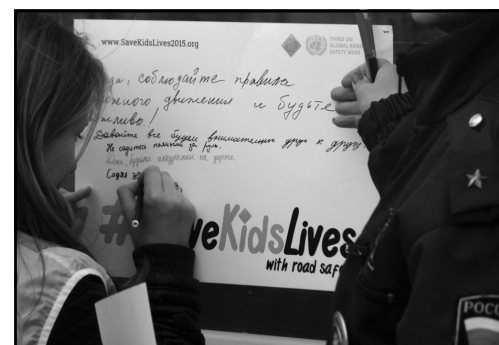 www.SaveKidsLives2015.org
THIRD UN
GLOBAL ROAD
SAFETY WEEK
соблюдайте правила
движения и будьте
Давайте все будем внимательны друг к другу
Не садитесь пьяными за руль.
дороге
#SaveKidsLives
with road safe
РОСС